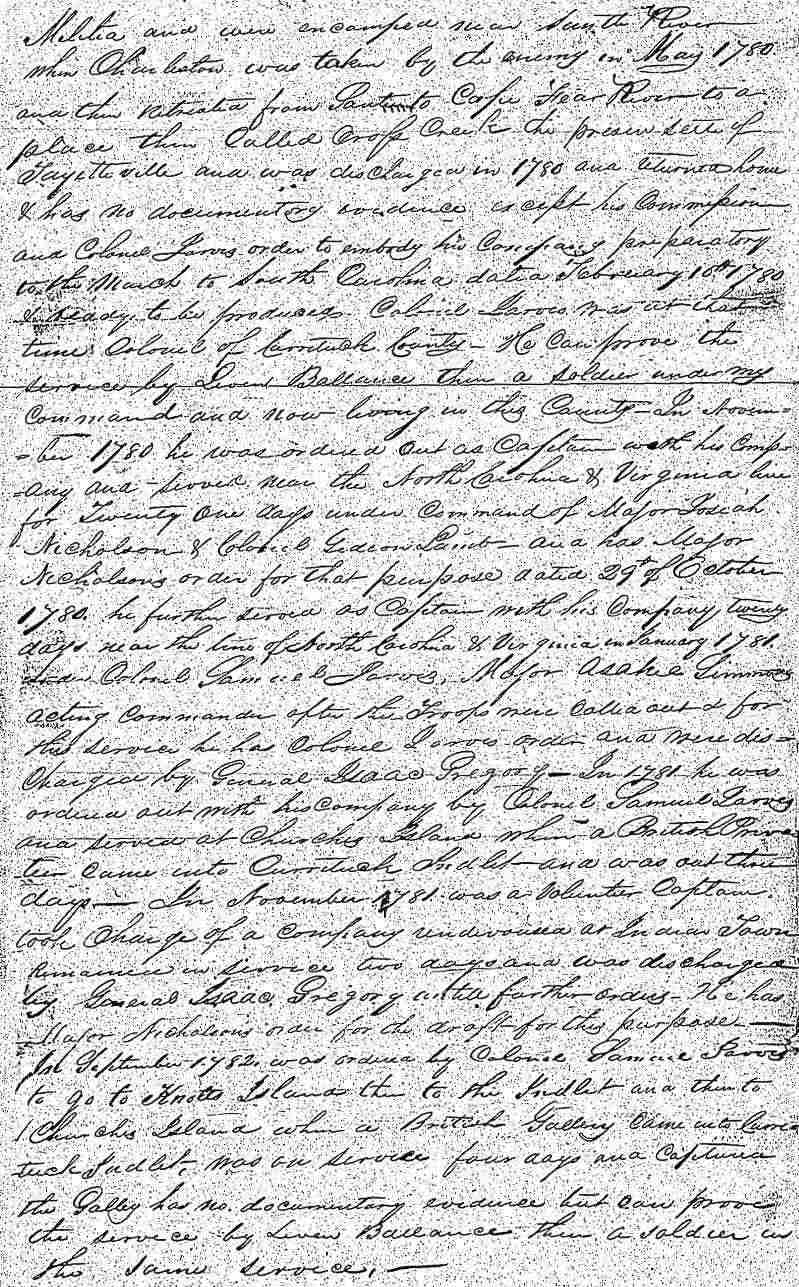 Militia and were encamped near Santte River
when Charleston was taken by the enemy in May 1780
and then retreated from Santee to Cape Fear River to a
place then Called Cross Creek the present seite of
Fayetteville and was discharged in 1780 and returned home
& has no documentory evidence except his Commission
and Colonel Jarvis order to embody his Company preparatory
to the March to South Carolina dated February 10th 1780
& ready to be produced. Colonel Jarvis was at that
time Colonel of Currituck County - He can prove the
service by Leven Ballance then a soldier under my
command and now living in this County - In Novem-
-ber 1780 he was ordered out as Captain with his Comp-
-any and served near the North Carolina & Virginia line
for Twenty One days under Command of Major Josiah
Nicholson & Colonel Gideon Lamb - and has Major
Nicholson's order for that purpose dated 29th of October
1780. he further served as Captain with his Company, twenty
days near the line of North Carolina & Virginia in January 1781.
under Colonel Samuel Jarvis, Major Asahel Simmons
acting commander after the Troops were called out & for
this service he has Colonel Jarvis order and were dis-
charged by General Isaac Gregory - In 1781 he was
ordered out with his company by Colonel Samuel Jarvis
and served at Churches Island when a British Priva
teer came into Currituck Indlet and was out three
days - In November 1781 was a Volunteer Captain.
took Charge of a company rendevoused at Indian Town
remained in service two days and was discharged
by General Isaac Gregory untill further orders - He has
Major Nicholsons order for the draft for this purpose -
In September 1782. was ordered by Colonel Samuel Jarvis
to go to Knotts Island then to the Indlet and then to
Churches Island when a British Galley came into Curri
tuck Indlet - was on service four days and captured
the Galley has no documentary evidence but can prove
the service by Leven Ballance then a soldier in
the same service. -